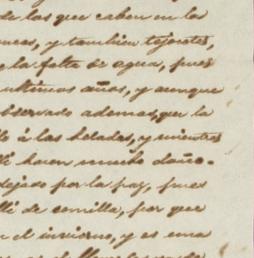 de las que caben en los
y tambien tejocotes,
la falta de agua, pues
ultimos años, y aunque
observado ademas, que la
á las heladas, y mientras
hacen mucho daño.
dejado por la paz, pues
de semilla, por que
el invierno, y es una